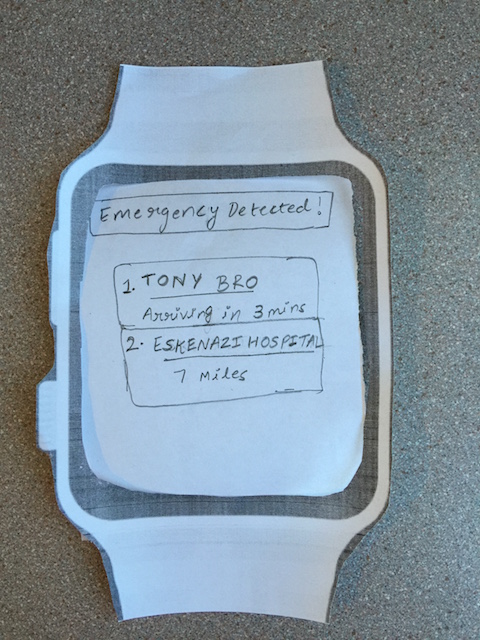 Emergency Detected!
1. TONY BRO
Arriving in 3 mins
2. ESKENAZI HOSPITAL
7 Miles